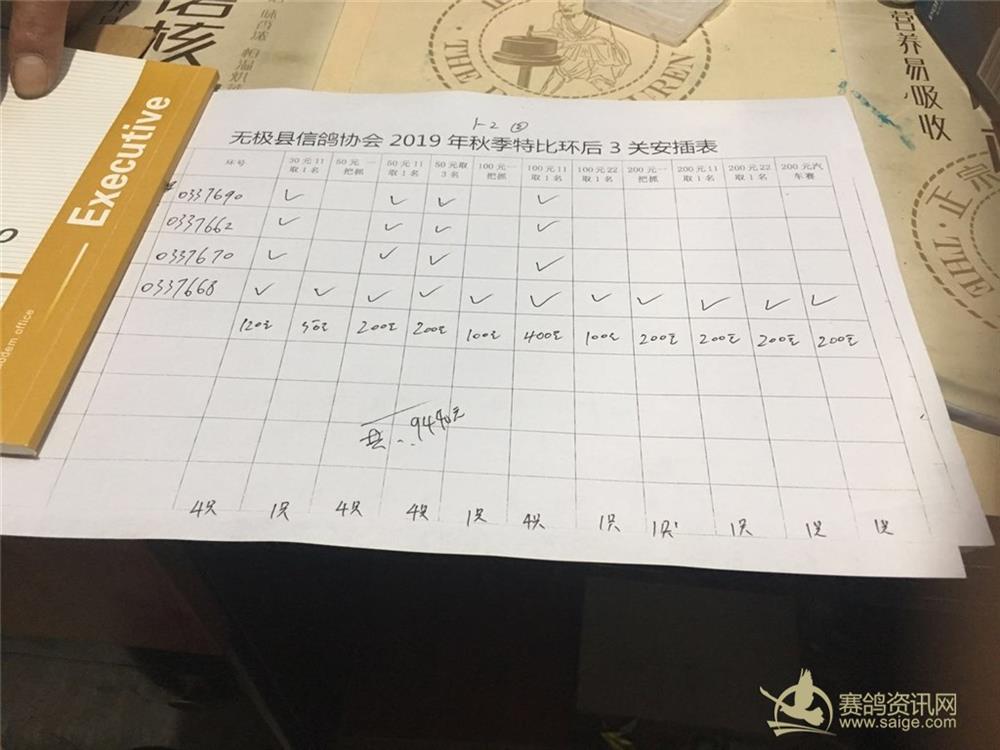 信核
味香送
柏温烘
THE
UREN
正宗
THE
营养易吸收
Executive
odem office
1-2 ⑤
无极县信鸽协会 2019 年秋季特比环后 3 关安插表
环号 30 元 11 取 1 名 50 元 一把抓 50 元 11 取 1 名 50 元取 3 名 100 元一把抓 100 元 11 取 1 名 100 元 22 取 1 名 200 元一把抓 200 元 11 取 1 名 200 元 22 取 1 名 200 元汽车赛
0337690 ✓ ✓ ✓ ✓
0337662 ✓ ✓ ✓ ✓
0337670 ✓ ✓ ✓ ✓
0337668 ✓ ✓ ✓ ✓ ✓ ✓ ✓ ✓ ✓ ✓ ✓
120元 50元 200元 200元 100元 400元 100元 200元 200元 200元 200元
共: 9440元
4只 1只 4只 4只 1只 4只 1只 1只 1只 1只 1只
赛鸽资讯网
www.saige.com